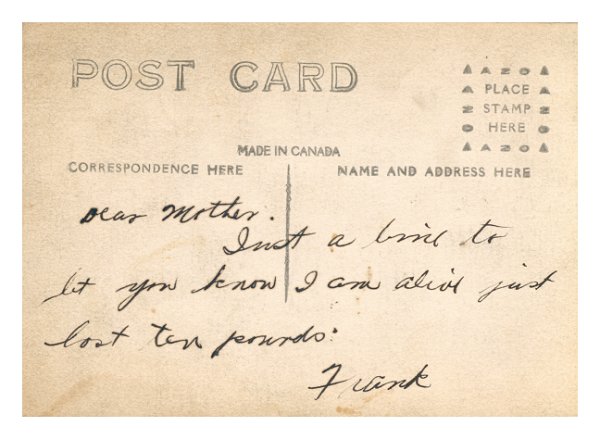 POST CARD
▲ A Z O ▲
▲ PLACE ▲
STAMP
HERE
▲ A Z O ▲
MADE IN CANADA
CORRESPONDENCE HERE
NAME AND ADDRESS HERE
Dear Mother.
Just a line to
let you know I am alive just
lost ten pounds.
Frank